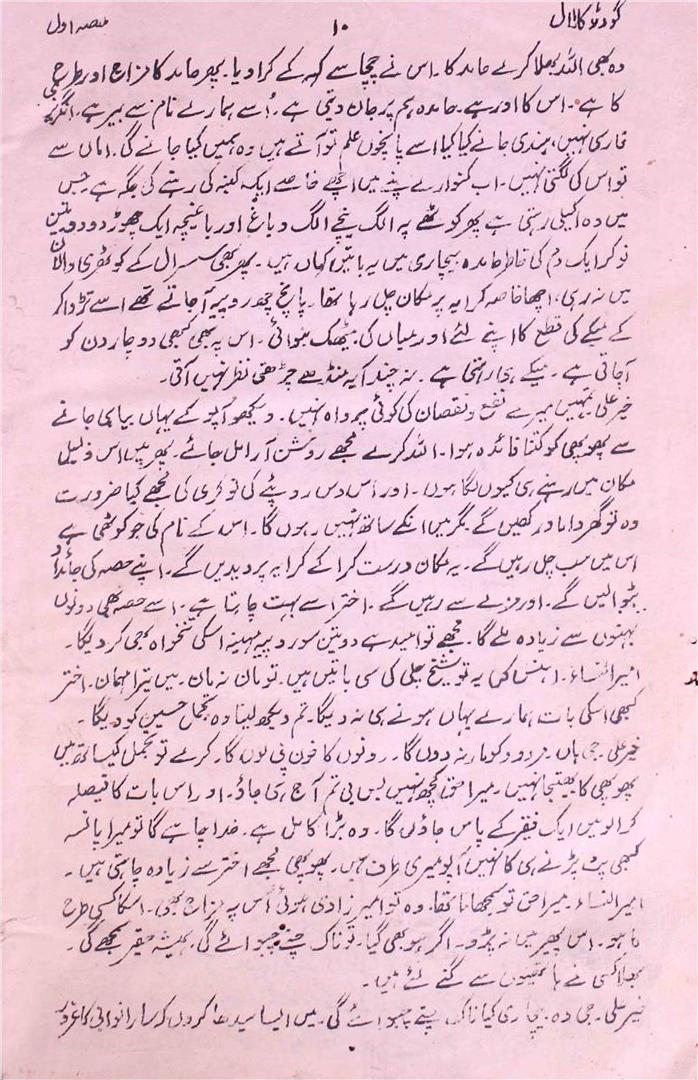 گودڑ کا لال ۱۰ حصہ اول
وہ بھی اللہ بھلا کرے حامد کا۔ اس نے چچا سے کہہ کے کرا دیا۔ پھر حامد کا مزاج اور طرح
کا ہے۔ اس کا اور ہے۔ حامدہ ہم پر جان دیتی ہے۔ اُسے ہمارے نام سے بیر ہے۔
فارسی نہیں، ہندی جانے کیا کیا اسے پانچوں علم تو آتے ہیں وہ ہمیں کیا جانے گی۔ اماں سے
تو اس کی لگتی نہیں۔ اب کنوارے پنے میں اچھے خاصے ایک کنبہ کی رہنے کی جگہ ہے جس
میں وہ اکیلی رہتی ہے پھر کوٹھے پہ الگ نیچے الگ و باغ اور باغیچہ ایک چھوڑ دو دو تین
نوکر ایک دم کی خاطر حامدہ بیچاری میں یہ باتیں کہاں ہیں۔ پھر بھی سسرال کے کوٹھری دالان
میں نہ رہی، اچھا خاصہ کرایہ پر مکان چل رہا تھا۔ پانچ چھ روپیہ آ جاتے تھے اسے تڑوا کر
کے میکے کی قطع کا اپنے لئے اور میاں کی بیٹھک بنوائی۔ اس پہ بھی کبھی دو چار دن کو
آ جاتی ہے۔ میکے ہی رہتی ہے۔ نہ چندا یہ منڈھے چڑھتی نظر نہیں آتی۔
خیر علی۔ تمہیں میرے نفع و نقصان کی کوئی پرواہ نہیں۔ دیکھو آپو کے یہاں بیاہی جانے
سے پھوپھی کو کتنا فائدہ ہوا۔ اللہ کرے مجھے روشن آرا مل جائے۔ پھر میں اس ذلیل
مکان میں رہنے ہی کیوں لگا ہوں۔ اور اس دس روپئے کی نوکری کی مجھے کیا ضرورت
وہ تو گھر داماد رکھیں گے مگر میں انکے ساتھ نہیں رہوں گا۔ اس کے نام کی جو کوٹھی ہے
اس میں سب چل رہیں گے۔ یہ مکان درست کرا کے کرایہ پر دیدیں گے۔ اپنے حصہ کی جائداد
بٹوا لیں گے۔ اور مزے سے رہیں گے۔ اختر اسے بہت چاہتا ہے۔ اسے حصہ بھی دونوں
بہنوں سے زیادہ ملے گا۔ مجھے تو امید ہے دو تین سو روپیہ مہینہ اسکی تنخواہ بھی کر دیگا۔
امیرالنساء۔ (ہنس کر) یہ تو شیخ چلی کی سی باتیں ہیں۔ تو مان نہ مان۔ میں تیرا مہمان۔ اختر
کبھی اسکی بات ہمارے یہاں ہونے ہی نہ دیگا۔ تم دیکھ لینا وہ تجمل حسین کو دیگا۔
خیر علی۔ جی ہاں نہ دوں گا۔ دونوں کا خون پی لوں گا۔ کرے تو تجمل کیساتھ میں
پھوپھی کا بھتیجا نہیں۔ میرا حق کچھ نہیں بس بی تم آج ہی جاؤ۔ اور اس بات کا فیصلہ
کرا لو میں ایک فقیر کے پاس جاؤں گا۔ وہ بڑا کامل ہے۔ خدا چاہے گا تو میرا پانسہ
کبھی پٹ پڑنے ہی کا نہیں آپو میری طرف ہیں۔ پھوپھی مجھے اختر سے زیادہ چاہتی ہیں۔
امیرالنساء۔ میرا حق تو سمجھانا تھا۔ وہ تو امیر زادی ہوئی اُس پہ مزاج بھی۔ اسکا کسی طرح
کا ہو۔ اس پھیر میں نہ پڑو۔ اگر ہو بھی گیا۔ تو ناک چنے چبوائے گی۔ ہمیشہ حقیر سمجھے گی۔
بھلا کسی نے ہاتھیوں سے گنے لئے ہیں۔
خیر علی۔ جی وہ بیچاری کیا ناک چنے چبوائے گی۔ میں ایسا سیدھا کروں کہ سارا نوابی کا غرور